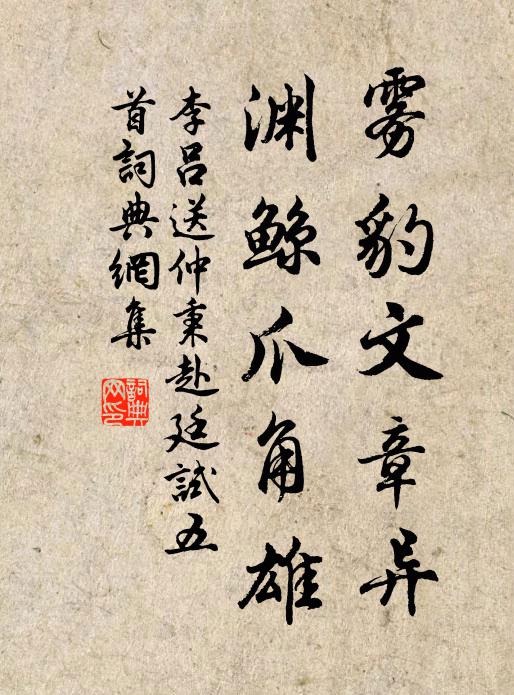 雾豹文章异
渊鯨爪角雄
李吕送仲秉赴廷試五
首詞典網集
詞典
网印